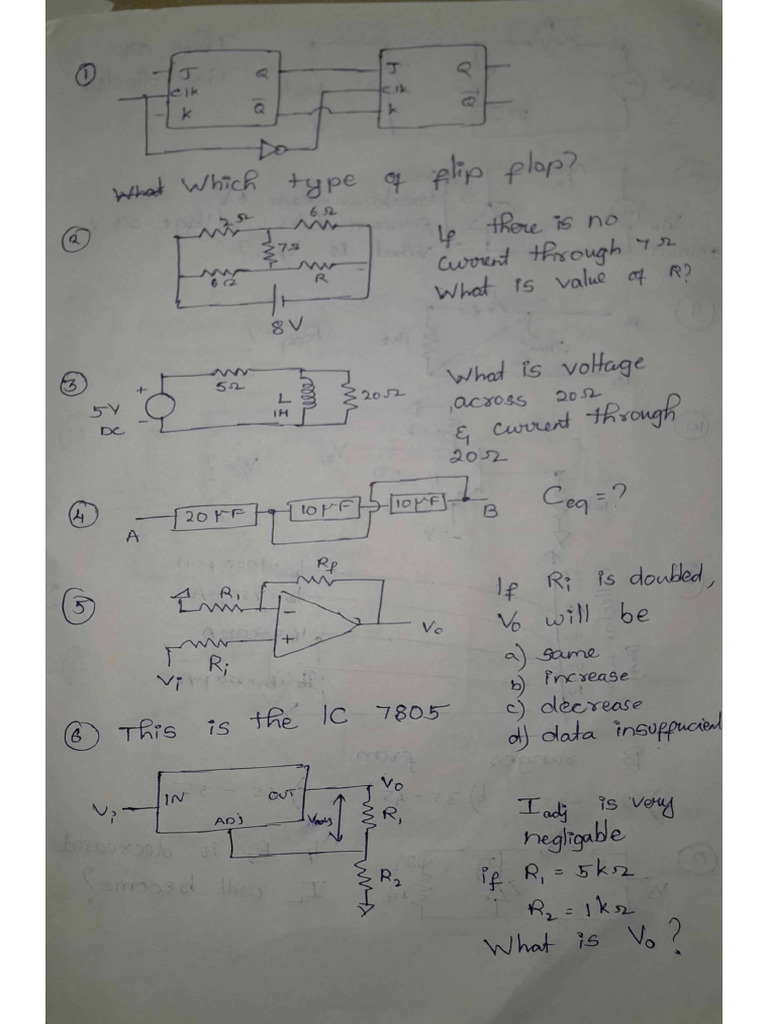 ①
J Q
clk
K Q̄
J Q
clk
K Q̄
Which type of flip flop?
②
6Ω
7Ω
6Ω R
8V
If there is no
current through 7Ω
What is value of R?
③
5V
DC
+
-
5Ω
L
1H
20Ω
What is voltage
across 20Ω
& current through
20Ω
④
A
20μF
10μF
10μF
B
Ceq = ?
⑤
R1
Rf
-
+
Ri
Vi
Vo
If Ri is doubled,
Vo will be
a) same
b) increase
c) decrease
d) data insufficient
⑥ This is the IC 7805
Vi
IN OUT
ADJ
Vo
R1
R2
Iadj is very
negligable
if R1 = 5kΩ
R2 = 1kΩ
What is Vo?